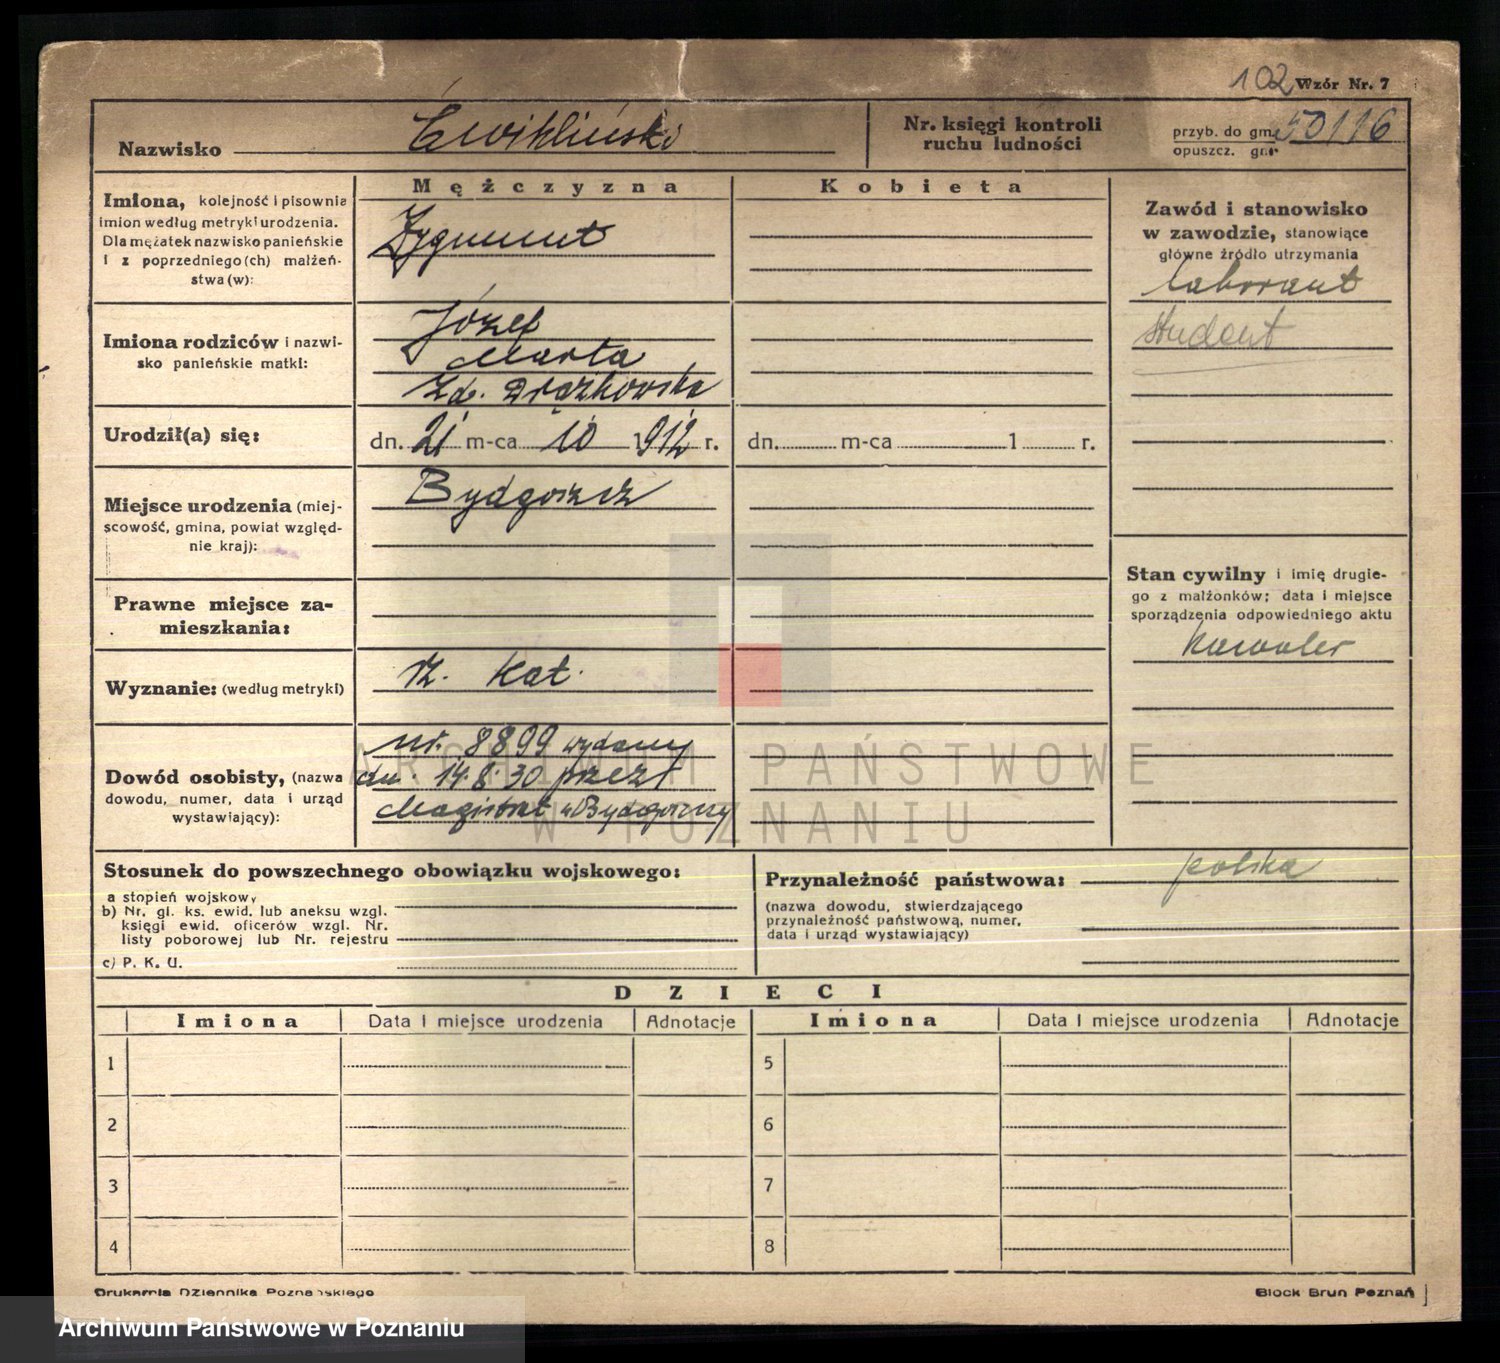 102 Wzór Nr. 7
Nazwisko Ćwikliński
Nr. księgi kontroli
ruchu ludności
przyb. do gm. 50116
opuszcz. gm.
Mężczyzna Kobieta
Imiona, kolejność i pisownia
imion według metryki urodzenia.
Dla mężatek nazwisko panieńskie
i z poprzedniego(ch) małżeń-
stwa(w):
Zygmunt
Zawód i stanowisko
w zawodzie, stanowiące
główne źródło utrzymania
laborant
student
Imiona rodziców i nazwi-
sko panieńskie matki:
Józef
Marta
zd. Drążkowska
Urodził(a) się: dn. 21 m-ca 10 1912 r. dn. m-ca 1 r.
Miejsce urodzenia (miej-
scowość, gmina, powiat względ-
nie kraj):
Bydgoszcz
Stan cywilny i imię drugie-
go z małżonków; data i miejsce
sporządzenia odpowiedniego aktu
kawaler
Prawne miejsce za-
mieszkania:
Wyznanie: (według metryki) rz. kat.
Dowód osobisty, (nazwa
dowodu, numer, data i urząd
wystawiający):
nr. 8899 wydany
dn. 14.8.30 przez
Magistrat w Bydgoszczy
ARCHIWUM PAŃSTWOWE
W POZNANIU
Stosunek do powszechnego obowiązku wojskowego:
a stopień wojskowy
b) Nr. gl. ks. ewid. lub aneksu wzgl.
księgi ewid. oficerów wzgl. Nr.
listy poborowej lub Nr. rejestru
c) P. K. U.
Przynależność państwowa: polska
(nazwa dowodu, stwierdzającego
przynależność państwową, numer,
data i urząd wystawiający)
DZIECI
Imiona Data i miejsce urodzenia Adnotacje Imiona Data i miejsce urodzenia Adnotacje
1 5
2 6
3 7
4 8
Drukarnia Dziennika Poznańskiego
Block Brun Poznań
Archiwum Państwowe w Poznaniu